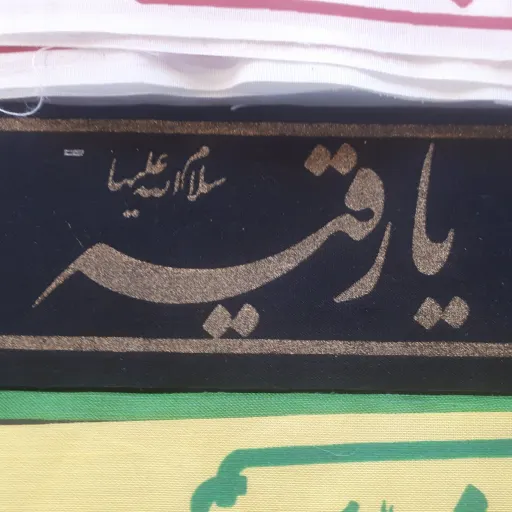 یا رقیه
سلام الله علیها